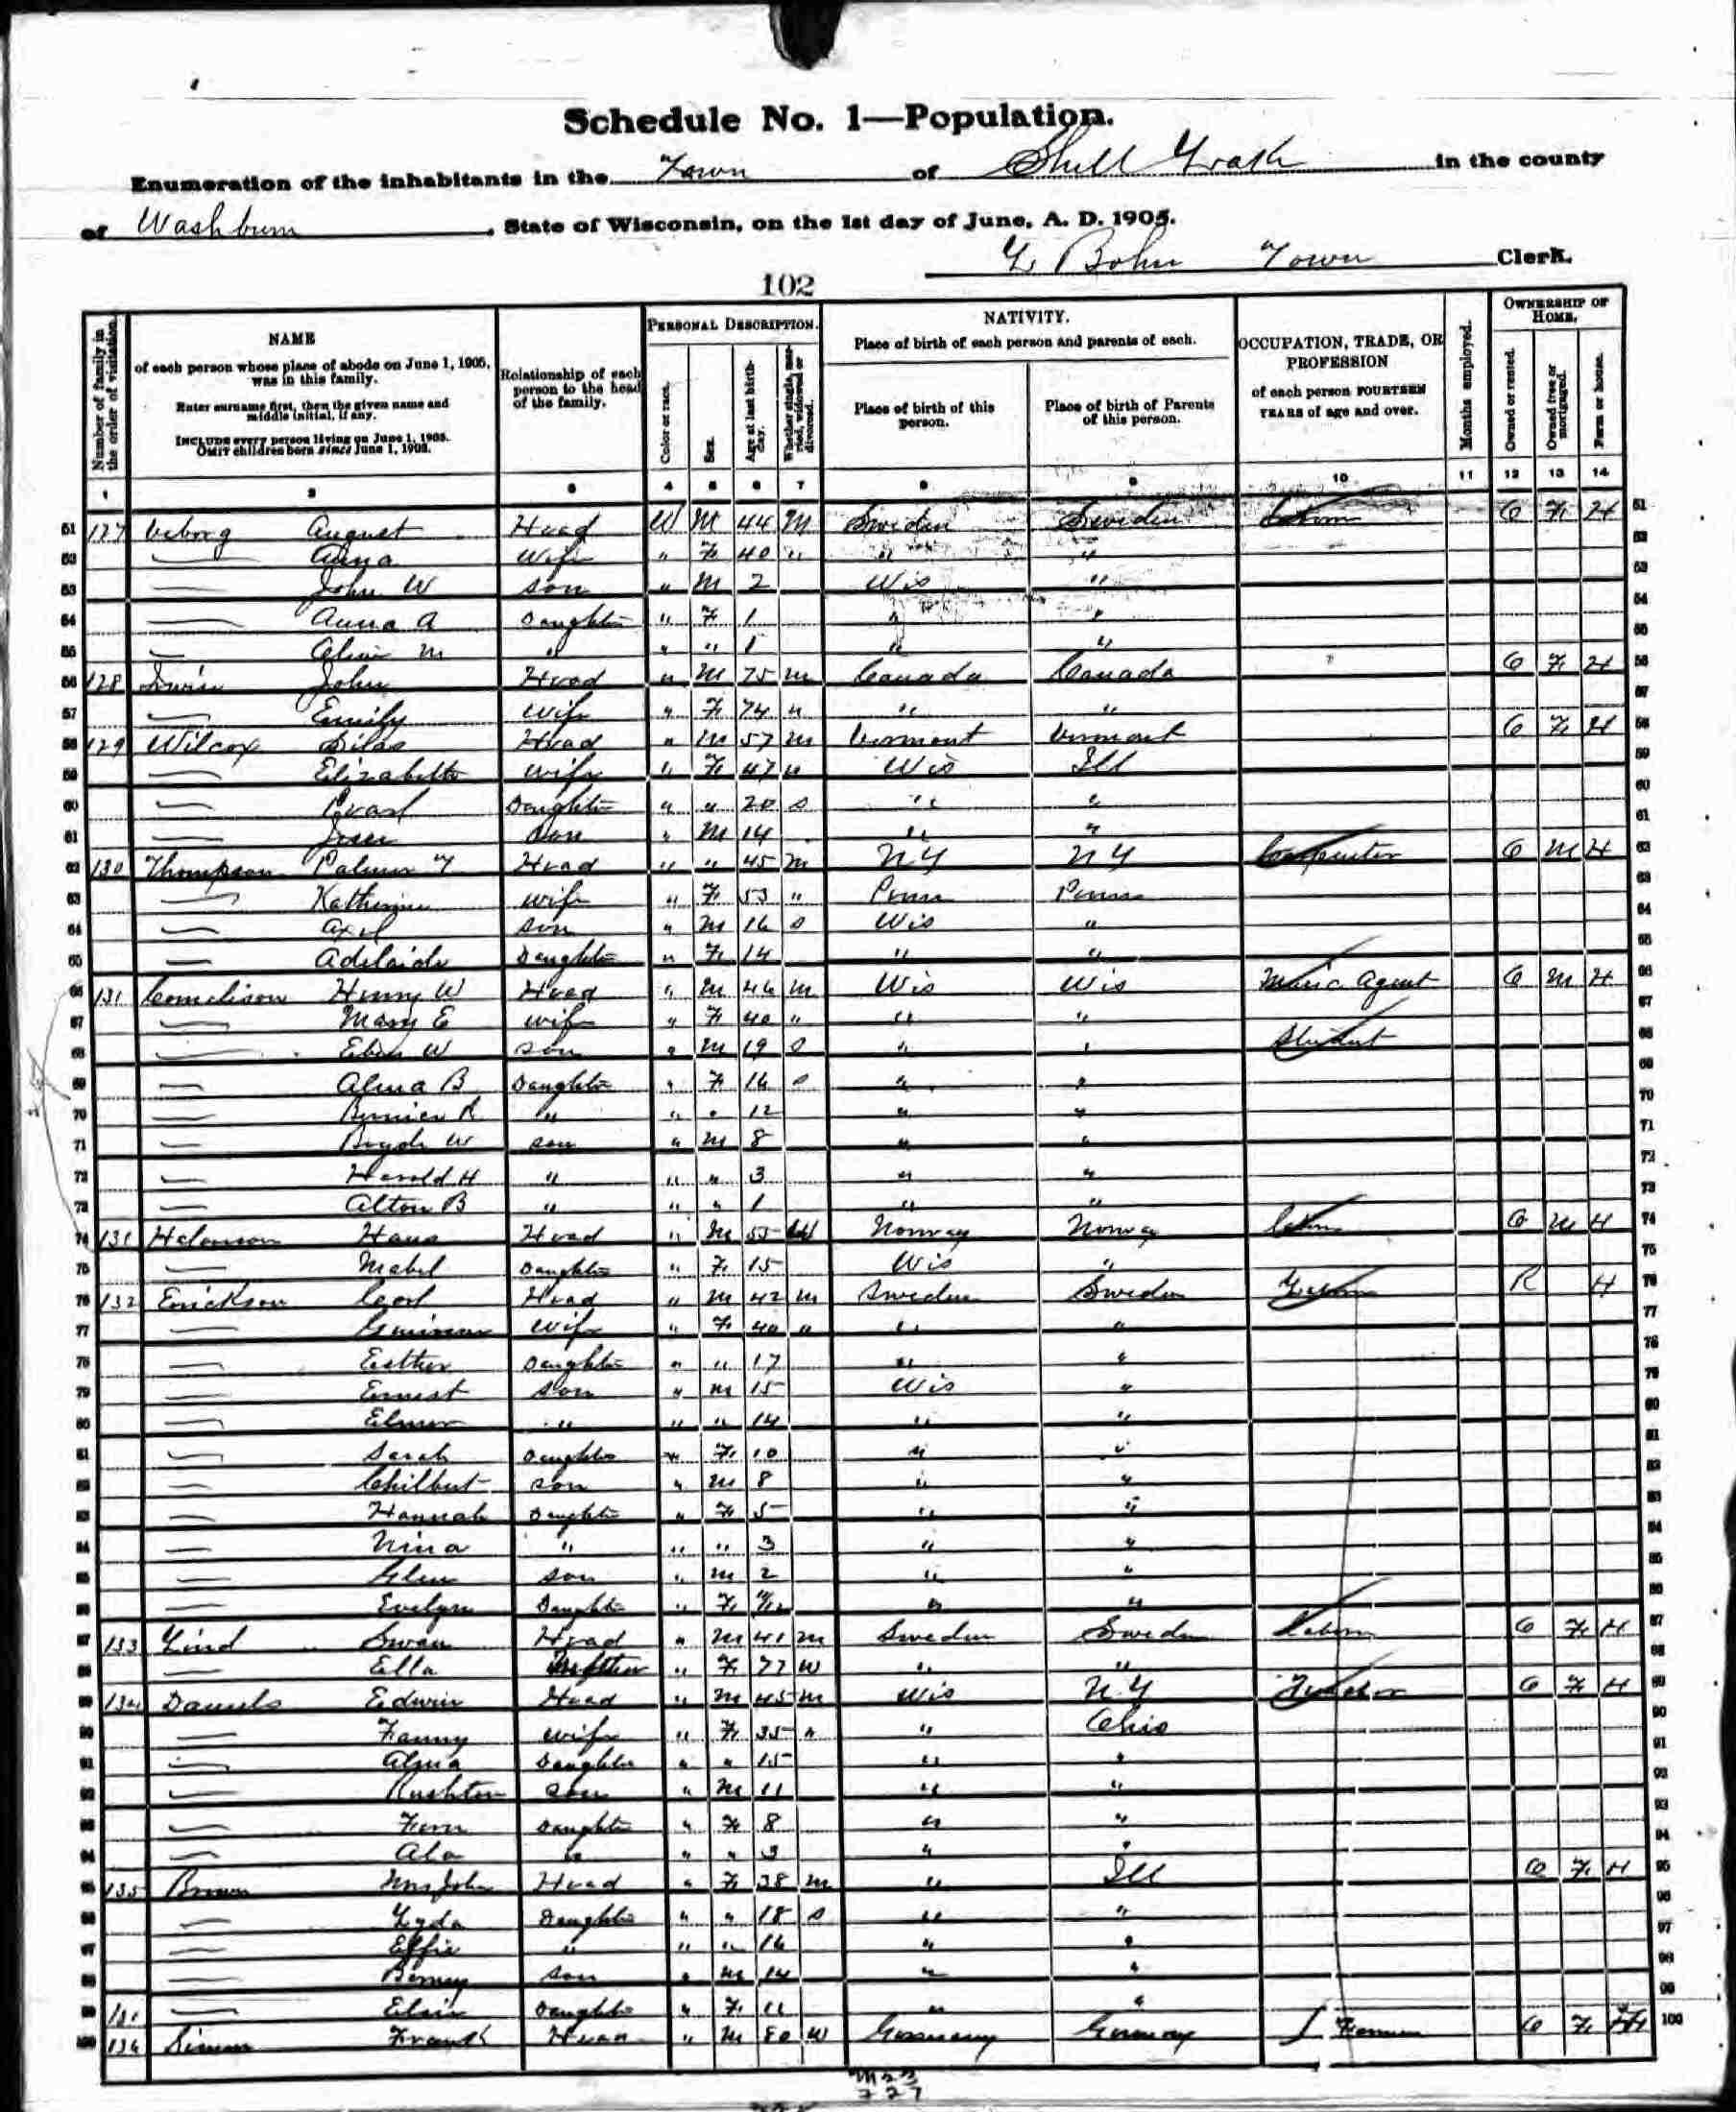 Schedule No. 1—Population.
Enumeration of the inhabitants in the Town of Shell Lake in the county
of Washburn, State of Wisconsin, on the 1st day of June, A. D. 1905.
L Bohn Town Clerk.
102
Number of family in the order of visitation.
NAME
of each person whose place of abode on June 1, 1905, was in this family.
Enter surname first, then the given name and middle initial, if any.
INCLUDE every person living on June 1, 1905.
OMIT children born since June 1, 1905.
Relationship of each person to the head of the family.
PERSONAL DESCRIPTION.
Color or race.
Sex.
Age at last birthday.
Whether single, married, widowed or divorced.
NATIVITY.
Place of birth of each person and parents of each.
Place of birth of this person.
Place of birth of Parents of this person.
OCCUPATION, TRADE, OR PROFESSION
of each person FOURTEEN YEARS of age and over.
Months employed.
OWNERSHIP OF HOME.
Owned or rented.
Owned free or mortgaged.
Farm or house.
1 2 3 4 5 6 7 8 9 10 11 12 13 14
51 127 August Head W M 44 M Sweden Sweden O F H 51
52 — Anna Wife " F 40 " " " 52
53 — John W son " M 2 Wis " 53
54 — Anna A Daughter " F 1 " " 54
55 — M " " " 1 " " 55
56 128 John Head " M 75 M Canada Canada O F H 56
57 — Emily Wife " F 74 " " " 57
58 129 Wilcox Silas Head " M 57 M Vermont Vermont O F H 58
59 — Elizabeth Wife " F 47 " Wis Ill 59
60 — Daughter " " 20 S " " 60
61 — son " M 14 " " 61
62 130 Thompson Palmer T Head " " 45 M NY NY Carpenter O M H 62
63 — Katherine Wife " F 53 " Penn Penn 63
64 — Axel son " M 16 S Wis " 64
65 — Adelaide Daughter " F 14 " " 65
66 131 Cornelison Henry W Head " M 46 M Wis Wis Music Agent O M H 66
67 — Mary E Wife " F 40 " " " 67
68 — W son " M 19 S " " Student 68
69 — Alma B Daughter " F 16 S " " 69
70 — R " " " 12 " " 70
71 — W son " M 8 " " 71
72 — Harold H " " " 3 " " 72
73 — Alton B " " " 1 " " 73
74 131 Hans Head " M 55 W Norway Norway O M H 74
75 — Mabel Daughter " F 15 Wis " 75
76 132 Erickson Carl Head " M 42 M Sweden Sweden R H 76
77 — Wife " F 40 " " " 77
78 — Esther Daughter " " 17 " " 78
79 — Ernest son " M 15 Wis " 79
80 — Elmer " " " 14 " " 80
81 — Sarah Daughter " F 10 " " 81
82 — Chilbert son " M 8 " " 82
83 — Hannah Daughter " F 5 " " 83
84 — Nina " " " 3 " " 84
85 — Glen son " M 2 " " 85
86 — Evelyn Daughter " F " " 86
87 133 Lind Swan Head " M 41 M Sweden Sweden Labor O F H 87
88 — Ella Mother " F 77 W " " 88
89 134 Daniels Edwin Head " M 45 M Wis N.Y O F H 89
90 — Fanny Wife " F 35 " " Ohio 90
91 — Alma Daughter " " 15 " " 91
92 — Rushton son " M 11 " " 92
93 — Fern Daughter " F 8 " " 93
94 — Ala " " " 3 " " 94
95 135 Brown Mrs John Head " F 38 M " Ill O F H 95
96 — Lyda Daughter " " 18 S " " 96
97 — Effie " " " 16 " " 97
98 — son " M 14 " " 98
99 — Elsie Daughter " F 11 " " 99
100 136 Simon Frank Head " M 80 W Germany Germany Farmer O F 100